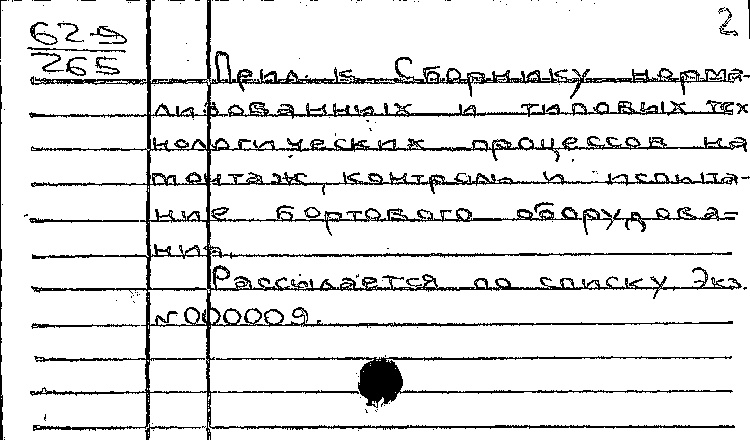 2
62-9
265
Прил. к Сборнику норма-
лизованных и типовых тех
нологических процессов на
монтаж, контроль и испыта-
ние бортового оборудова=
ния.
Рассылается по списку. Экз.
N000009.